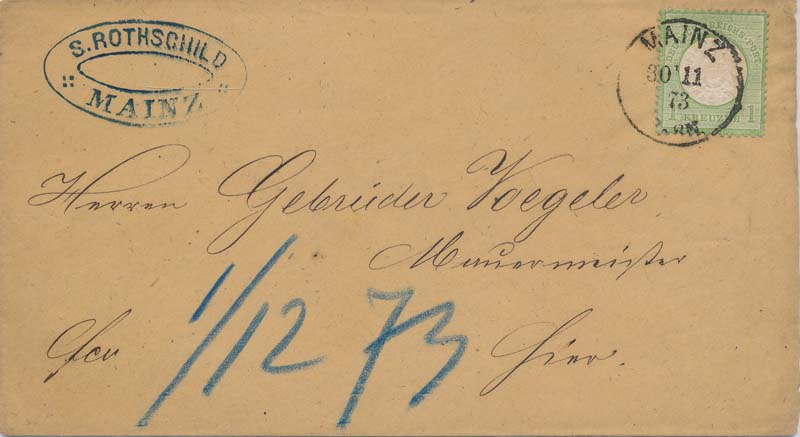 S. ROTHSCHILD
MAINZ
MAINZ
30 11
73
REICHS-POST
1 KREUZER 1
Herren Gebrüder Voegeler
Mauermeister
1/12 73
Hier.